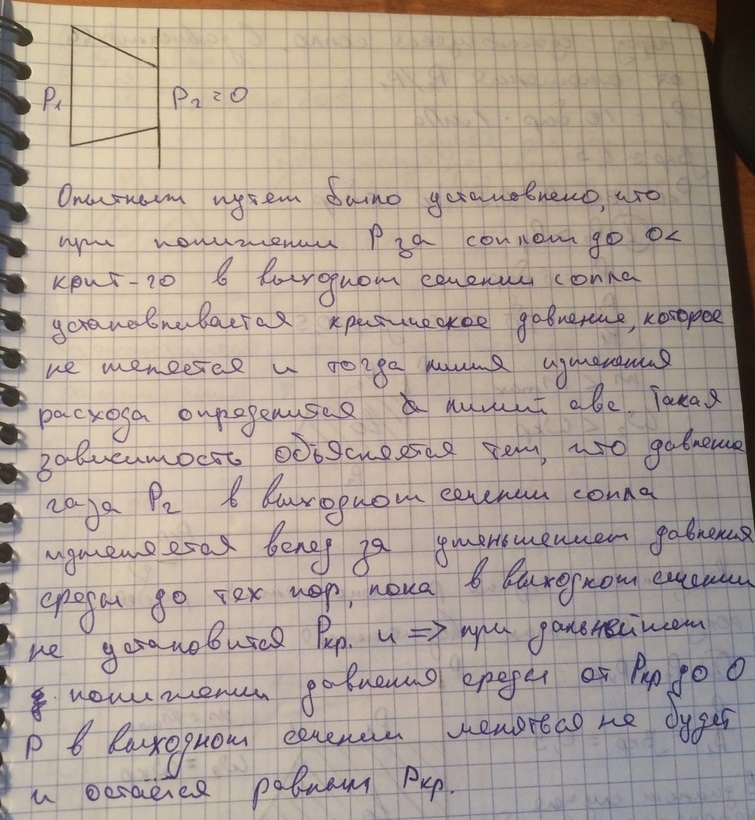 P₁
P₂=0
Опытным путем было установлено, что
при понижении P за соплом до 0<
крит-го в выходном сечении сопла
устанавливается критическое давление, которое
не меняется и тогда линия изменения
расхода определится линией авс. Такая
зависимость объясняется тем, что давление
газа P₂ в выходном сечении сопла
изменяется вслед за уменьшением давления
среды до тех пор, пока в выходном сечении
не установится Pкр. и => при дальнейшем
понижении давления среды от Pкр до 0
P в выходном сечении меняться не будет
и остаётся равным Pкр.